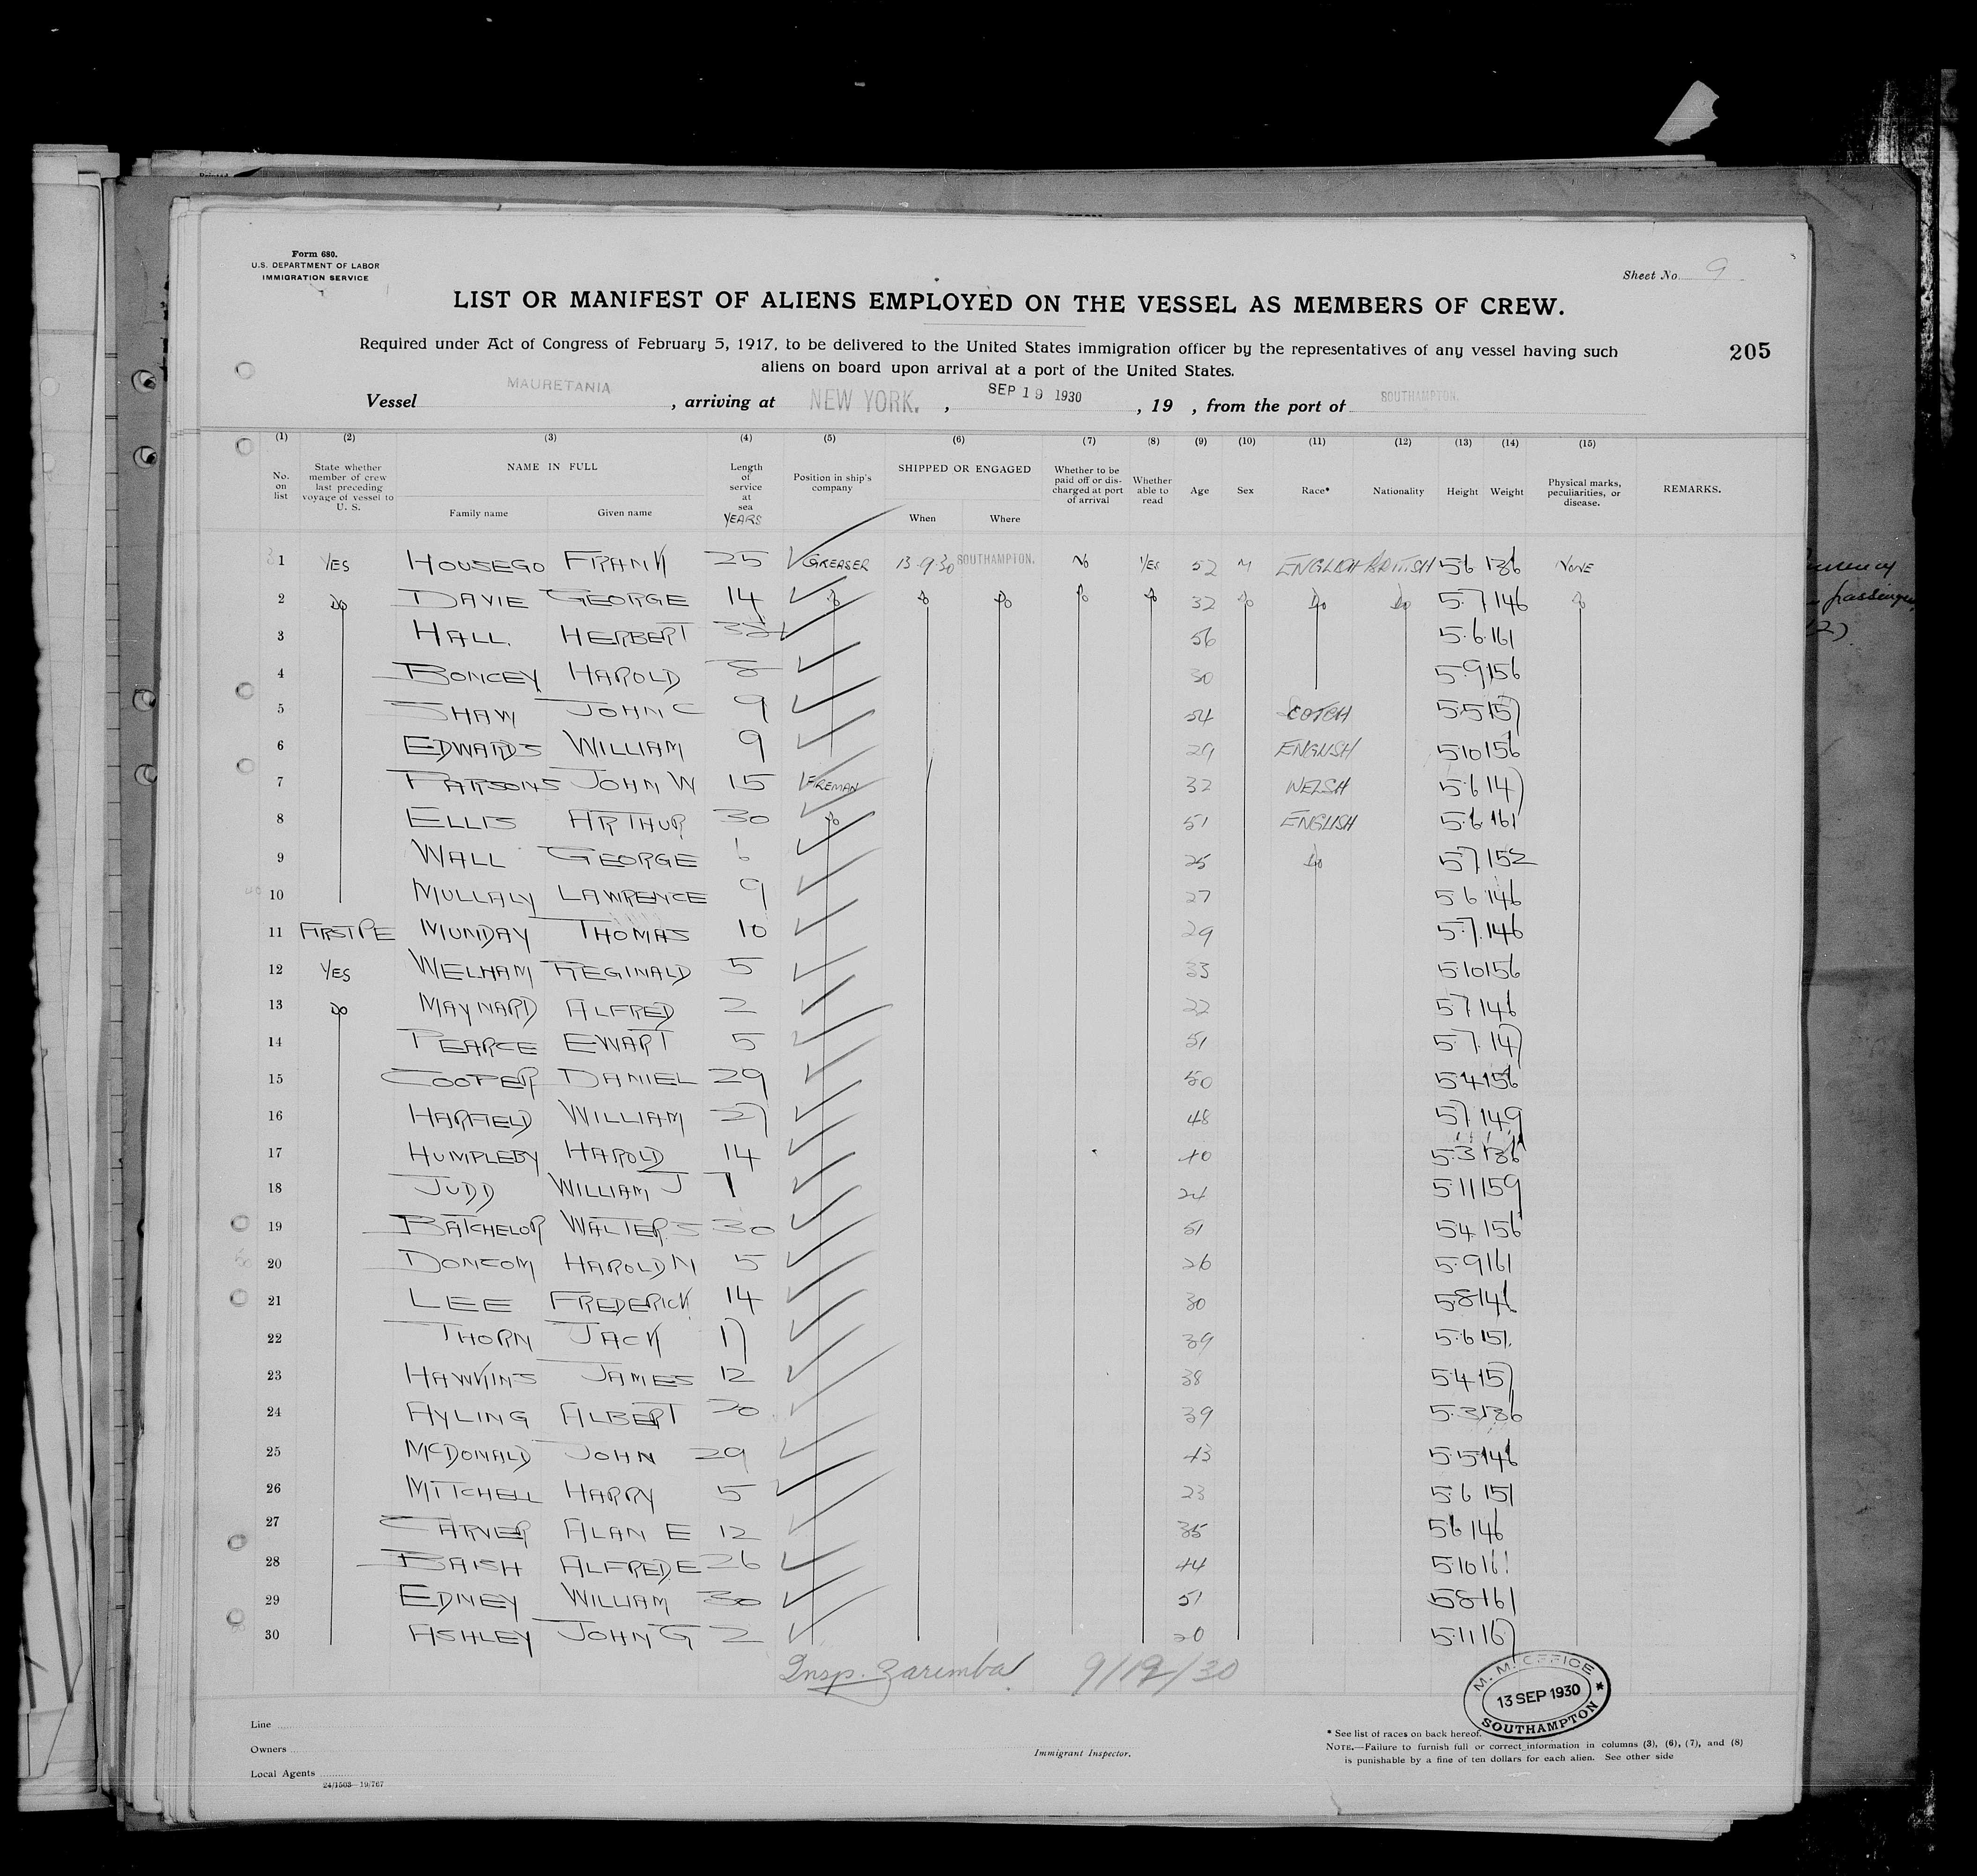 Form 680.
U.S. DEPARTMENT OF LABOR
IMMIGRATION SERVICE
Sheet No. 9
LIST OR MANIFEST OF ALIENS EMPLOYED ON THE VESSEL AS MEMBERS OF CREW.
Required under Act of Congress of February 5, 1917, to be delivered to the United States immigration officer by the representatives of any vessel having such
aliens on board upon arrival at a port of the United States.
205
Vessel MAURETANIA, arriving at NEW YORK., SEP 19 1930, 19 , from the port of SOUTHAMPTON.
(1) (2) (3) (4) (5) (6) (7) (8) (9) (10) (11) (12) (13) (14) (15)
No. on list State whether member of crew last preceding voyage of vessel to U. S. NAME IN FULL Family name Given name Length of service at sea YEARS Position in ship's company SHIPPED OR ENGAGED When Where Whether to be paid off or discharged at port of arrival Whether able to read Age Sex Race* Nationality Height Weight Physical marks, peculiarities, or disease. REMARKS.
1 YES HOUSEGO FRANK 25 GREASER 13-9-30 SOUTHAMPTON. NO YES 52 M ENGLISH BRITISH 5 6 136 NONE
2 DO DAVIE GEORGE 14 DO DO DO DO DO 32 DO DO DO 5.7 146 DO
3 HALL HERBERT 56 5.6 161
4 BONCEY HAROLD 8 30 5.9 156
5 SHAW JOHN C 9 54 SCOTCH 5.5 157
6 EDWARDS WILLIAM 9 29 ENGLISH 5.10 156
7 PARSONS JOHN W 15 FIREMAN 32 WELSH 5.6 147
8 ELLIS ARTHUR 30 DO 51 ENGLISH 5.6 161
9 WALL GEORGE 6 25 DO 5.7 152
10 MULLALY LAWRENCE 9 27 5 6 146
11 FIRST PE MUNDAY THOMAS 10 29 5.7 146
12 YES WELHAM REGINALD 5 33 5.10 156
13 DO MAYNARD ALFRED 2 22 5.7 146
14 PEARCE EWART 5 51 5.7 147
15 COOPER DANIEL 29 50 5.4 156
16 HARFIELD WILLIAM 27 48 5.7 149
17 HUMPLEBY HAROLD 14 40 5.3 136
18 JUDD WILLIAM J 1 24 5.11 159
19 BATCHELOR WALTER S 30 51 5.4 156
20 DONCOM HAROLD N 5 26 5.9 161
21 LEE FREDERICK 14 30 5.8 146
22 THORN JACK 17 39 5.6 151
23 HAWKINS JAMES 12 38 5.4 157
24 AYLING ALBERT 20 39 5.3 136
25 MCDONALD JOHN 29 43 5.5 146
26 MITCHELL HARRY 5 23 5.6 151
27 CARVER ALAN E 12 35 5.6 146
28 BAISH ALFRED E 26 44 5.10 161
29 EDNEY WILLIAM 30 51 5.8 161
30 ASHLEY JOHN G 2 20 5.11 167
Insp. Zaremba 9/19/30
M. M. OFFICE
13 SEP 1930
SOUTHAMPTON
Line
Owners
Local Agents
24/1503—19/767
Immigrant Inspector.
* See list of races on back hereof.
NOTE.—Failure to furnish full or correct information in columns (3), (6), (7), and (8)
is punishable by a fine of ten dollars for each alien. See other side
passenger